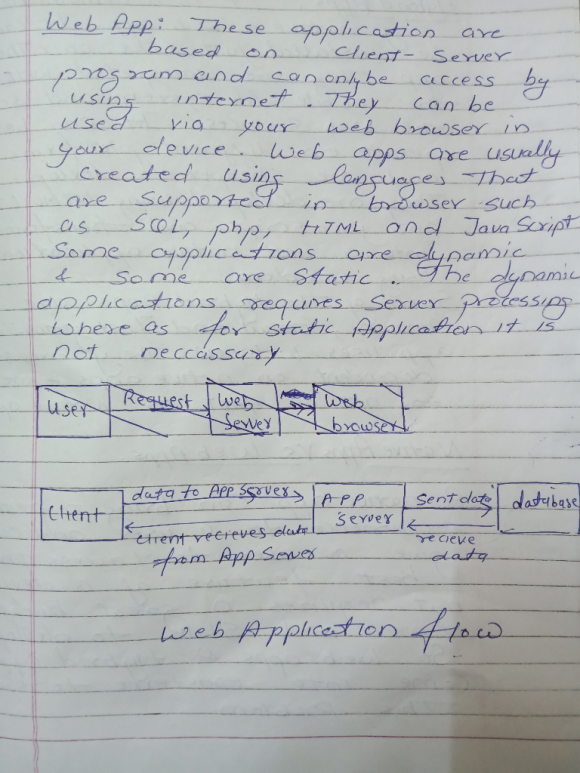 Web App: These application are
based on Client-Server
program and can only be access by
using internet. They can be
used via your web browser in
your device. Web apps are usually
created using languages that
are supported in browser such
as SQL, php, HTML and JavaScript
Some applications are dynamic
& some are static. The dynamic
applications requires server processing
where as for static Application it is
not neccassary
User Request Web Server Web browser
Client data to App Server APP Server Sent data database
Client recieves data from App Server recieve data
Web Application flow